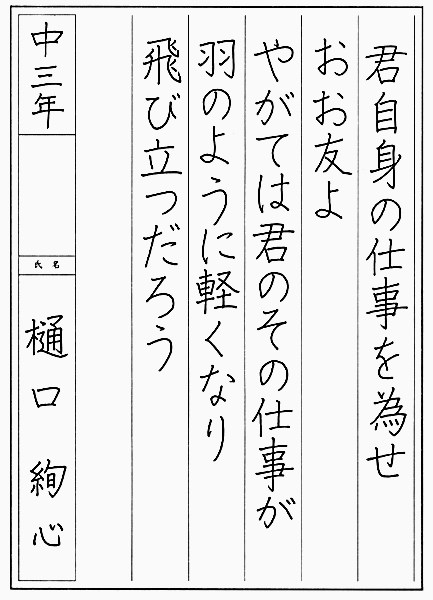 君自身の仕事を為せ
おお友よ
やがては君のその仕事が
羽のように軽くなり
飛び立つだろう
中三年
氏名
樋口 絢心